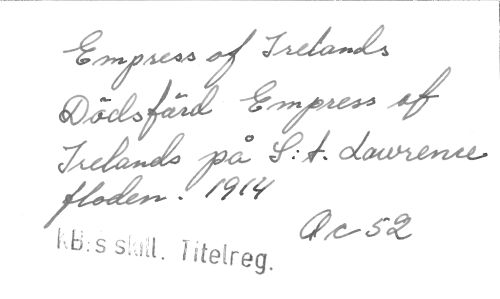 Empress of Irelands
Dödsfärd Empress of
Irelands på S:t. Lawrence
floden. 1914
Qc 52
KB:s skill. Titelreg.